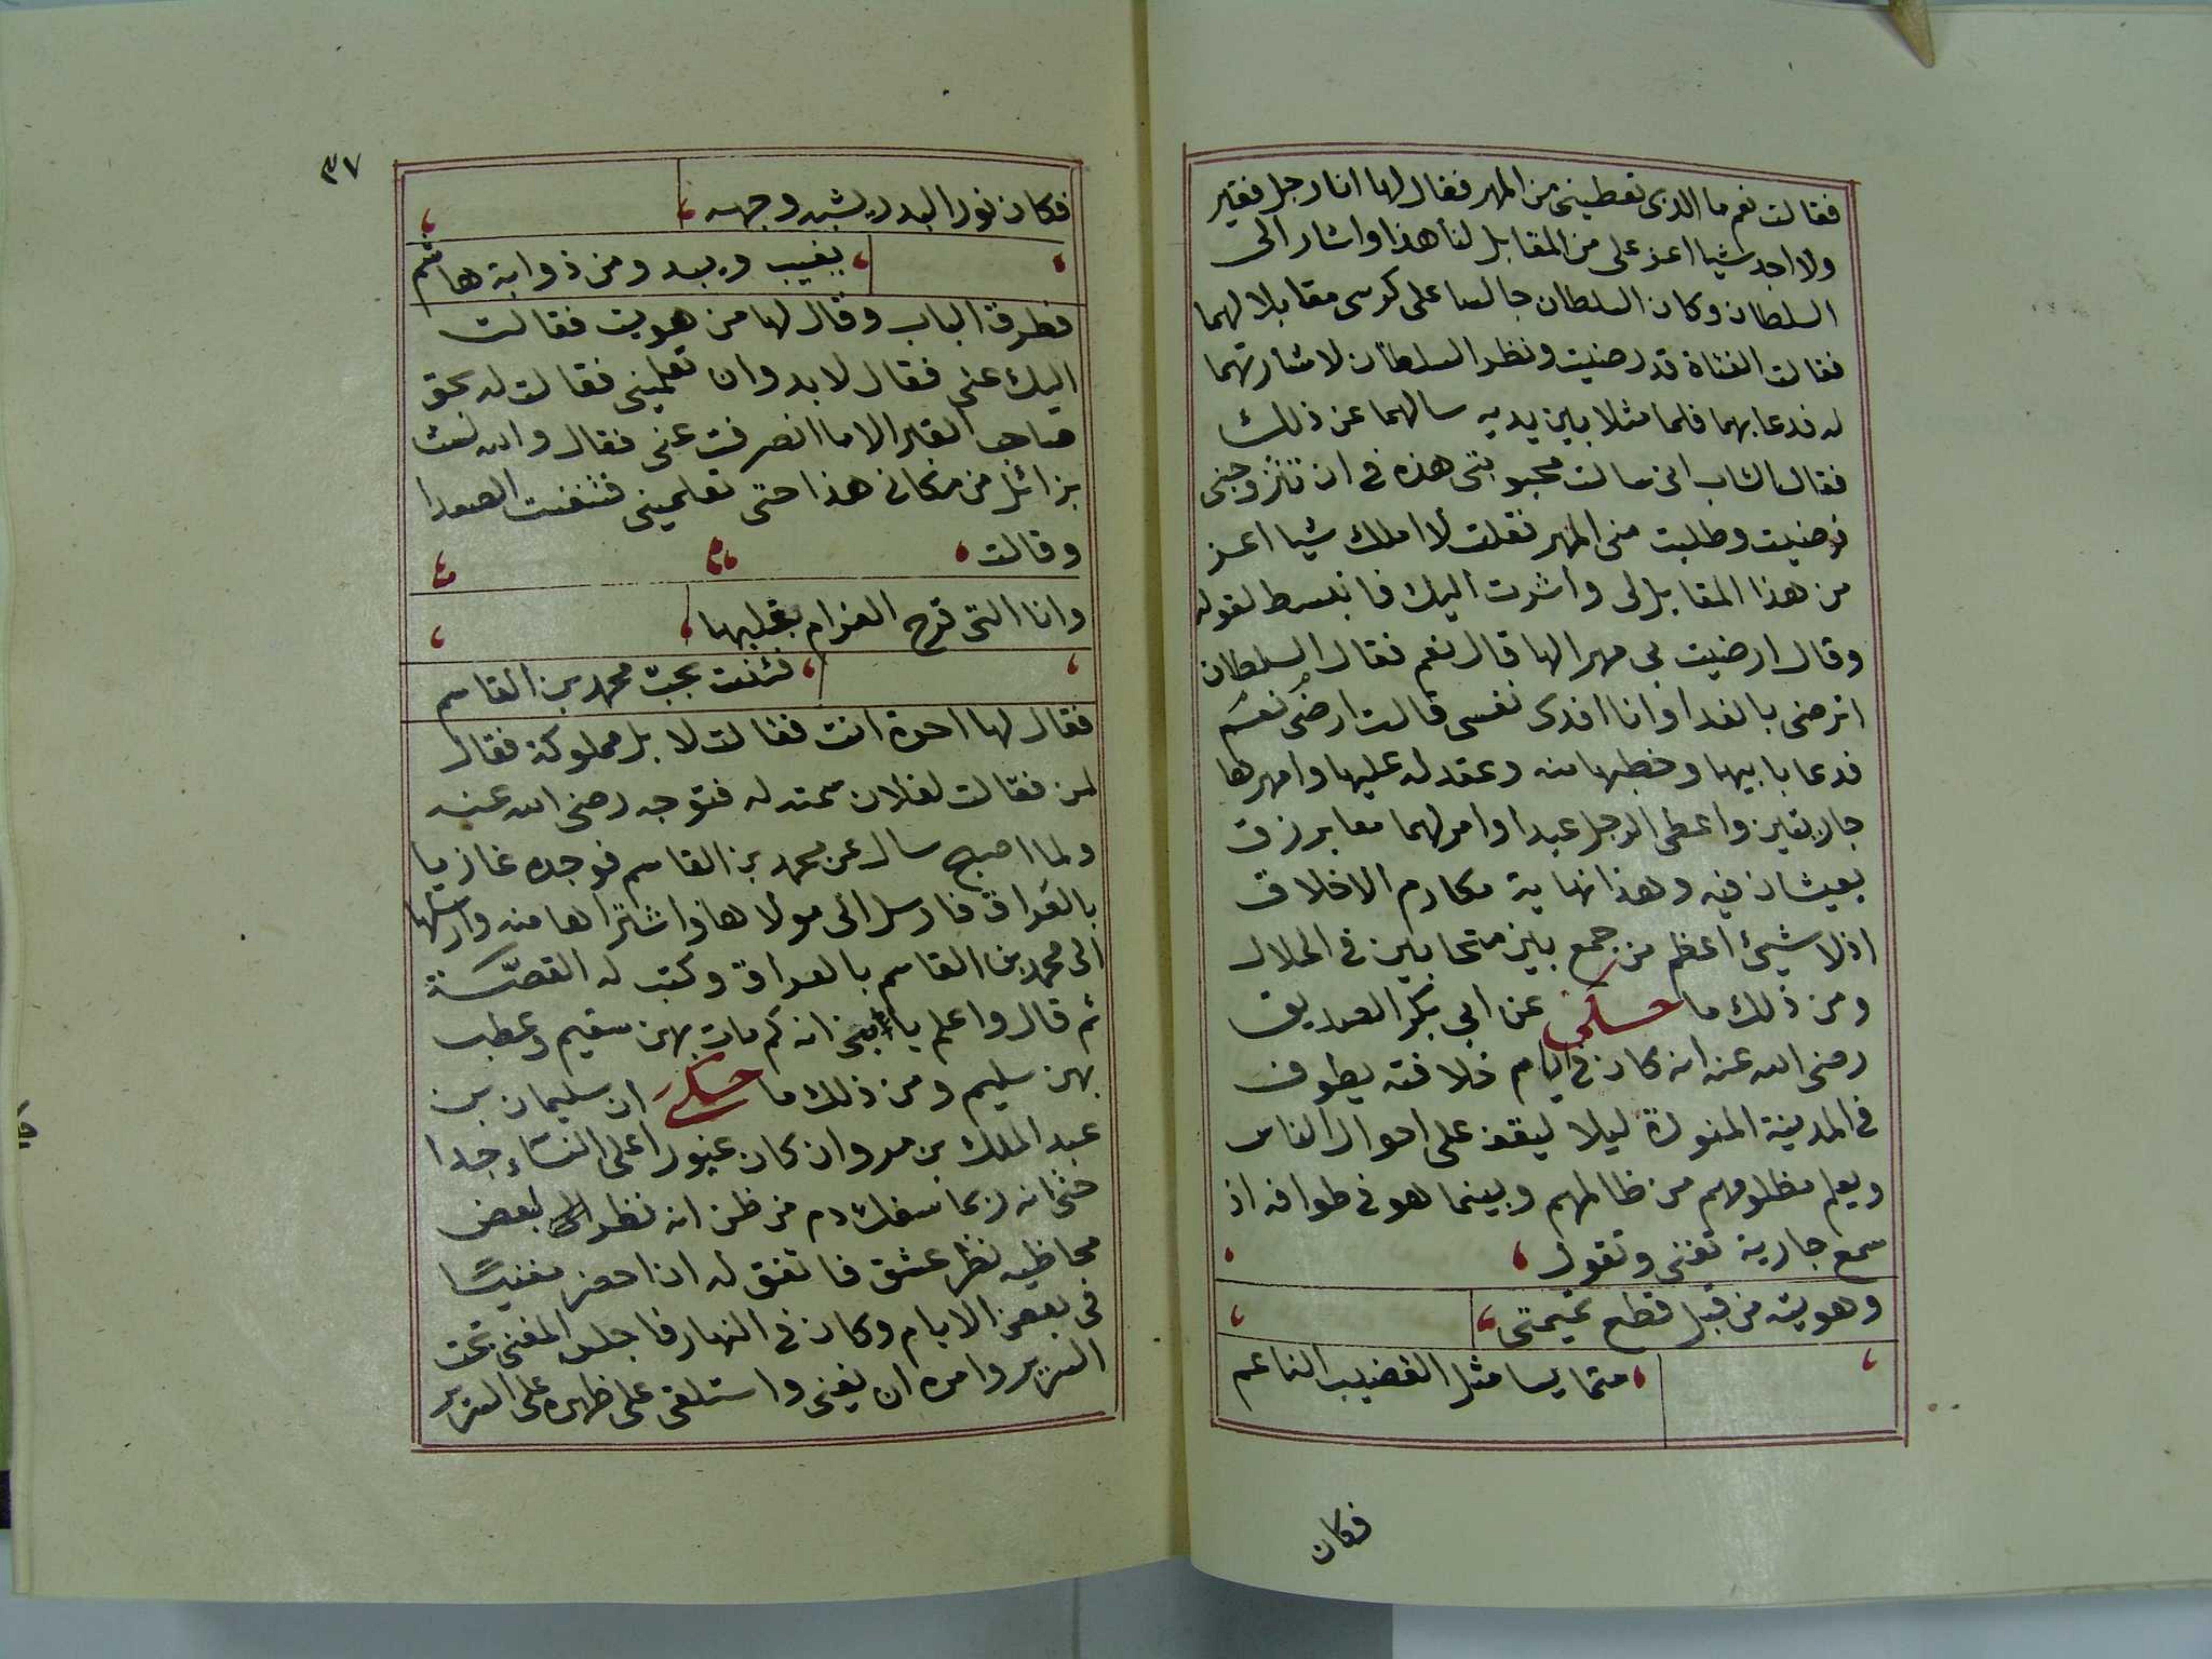 فقالت نعم ما الذى تعطينى من المهر فقال لها انا رجل فقير
ولا اجد شيا اعز على من المقابل لنا هذا واشار الى
السلطان وكان السلطان جالسا على كرسى مقابلا لهما
فقالت الفتاة قد رضيت ونظر السلطان لاشارتهما
له فدعا بهما فلما مثلا بين يديه سالهما عن ذلك
فقال الشاب انى سالت محبوبتى هذه فى ان تتزوجنى
فرضيت وطلبت منى المهر فقلت لا املك شيا اعز
من هذا المقابل لى واشرت اليك فانبسط لقوله
وقال ارضيت بى مهرا لها قال نعم فقال السلطان
اترضى بالفدا وانا افدى نفسى قالت ارضى نعم
فدعا بابيها وخطبها منه وعقد له عليها وامهرها
جاريتين واعطى الرجل عبدا وامر لهما معا برزق
يعيشان فيه وهذا نهاية مكارم الاخلاق
اذ لا شيئ اعظم من جمع بين متحابين فى الحلال
ومن ذلك ما حكى عن ابى بكر الصديق
رضى الله عنه انه كان فى ايام خلافته يطوف
فى المدينة المنورة ليلا ليقف على احوال الناس
ويعلم مظلومهم من ظالمهم وبينما هو فى طوافه اذ
سمع جارية تغنى وتقول
وهويته من قبل قطع تميمتى
متمايسا مثل القضيب الناعم
فكان
٣٧
فكان نور البدر يشبه وجهه
يغيب ويبد ومن ذوابة هاشم
فطرق الباب وقال لها من هويت فقالت
اليك عنى فقال لا بد وان تعلمينى فقالت له بحق
صاحب القبر الا ما انصرفت عنى فقال والله لست
بزائل من مكانى هذا حتى تعلمينى فتنفست الصعدا
وقالت
وانا التى قرح الغرام بقلبها
فئنت بحب محمد بن القاسم
فقال لها احرة انت فقالت لا بل مملوكة فقال
لمن فقالت لفلان سمته له فتوجه رضى الله عنه
ولما اصبح سال عن محمد بن القاسم فوجده غازيا
بالعراق فارسل الى مولاها واشتراها منه وارسلها
الى محمد بن القاسم بالعراق وكتب له القصة
ثم قال واعلم يا بنى انه كم مات بهن سقيم وعطب
بهن سليم ومن ذلك ما حكى ان سليمان بن
عبد الملك بن مروان كان غيورا على النساء جدا
حتى انه ربما سفك دم من ظن انه نظر الى بعض
محاظيه نظر عشق فاتفق له ان احضر مغنيا
فى بعض الايام وكان فى النهار فاجلس المغنى تحت
السرير وامره ان يغنى واستلقى على ظهره على السرير